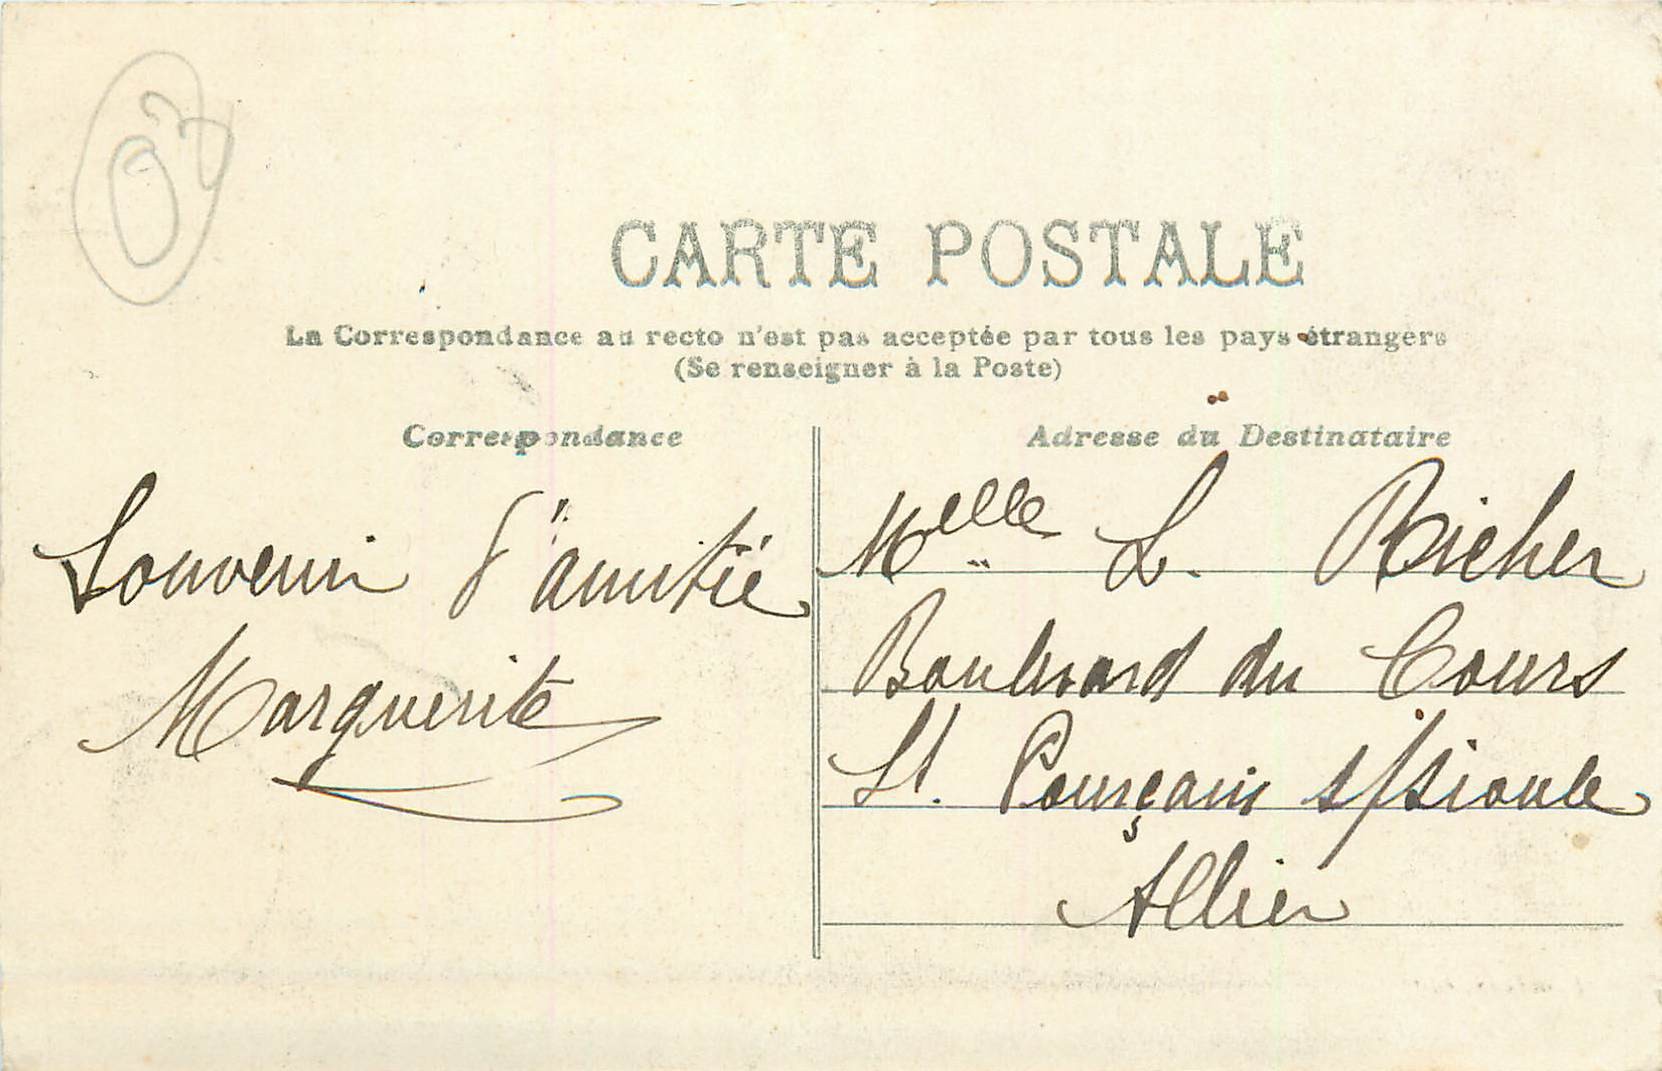 03
CARTE POSTALE
La Correspondance au recto n'est pas acceptée par tous les pays étrangers
(Se renseigner à la Poste)
Correspondance
Souvenir d'amitié
Marguerite
Adresse du Destinataire
Melle L. Richer
Boulevard du Cours
St. Pourçain s/Sioule
Allier